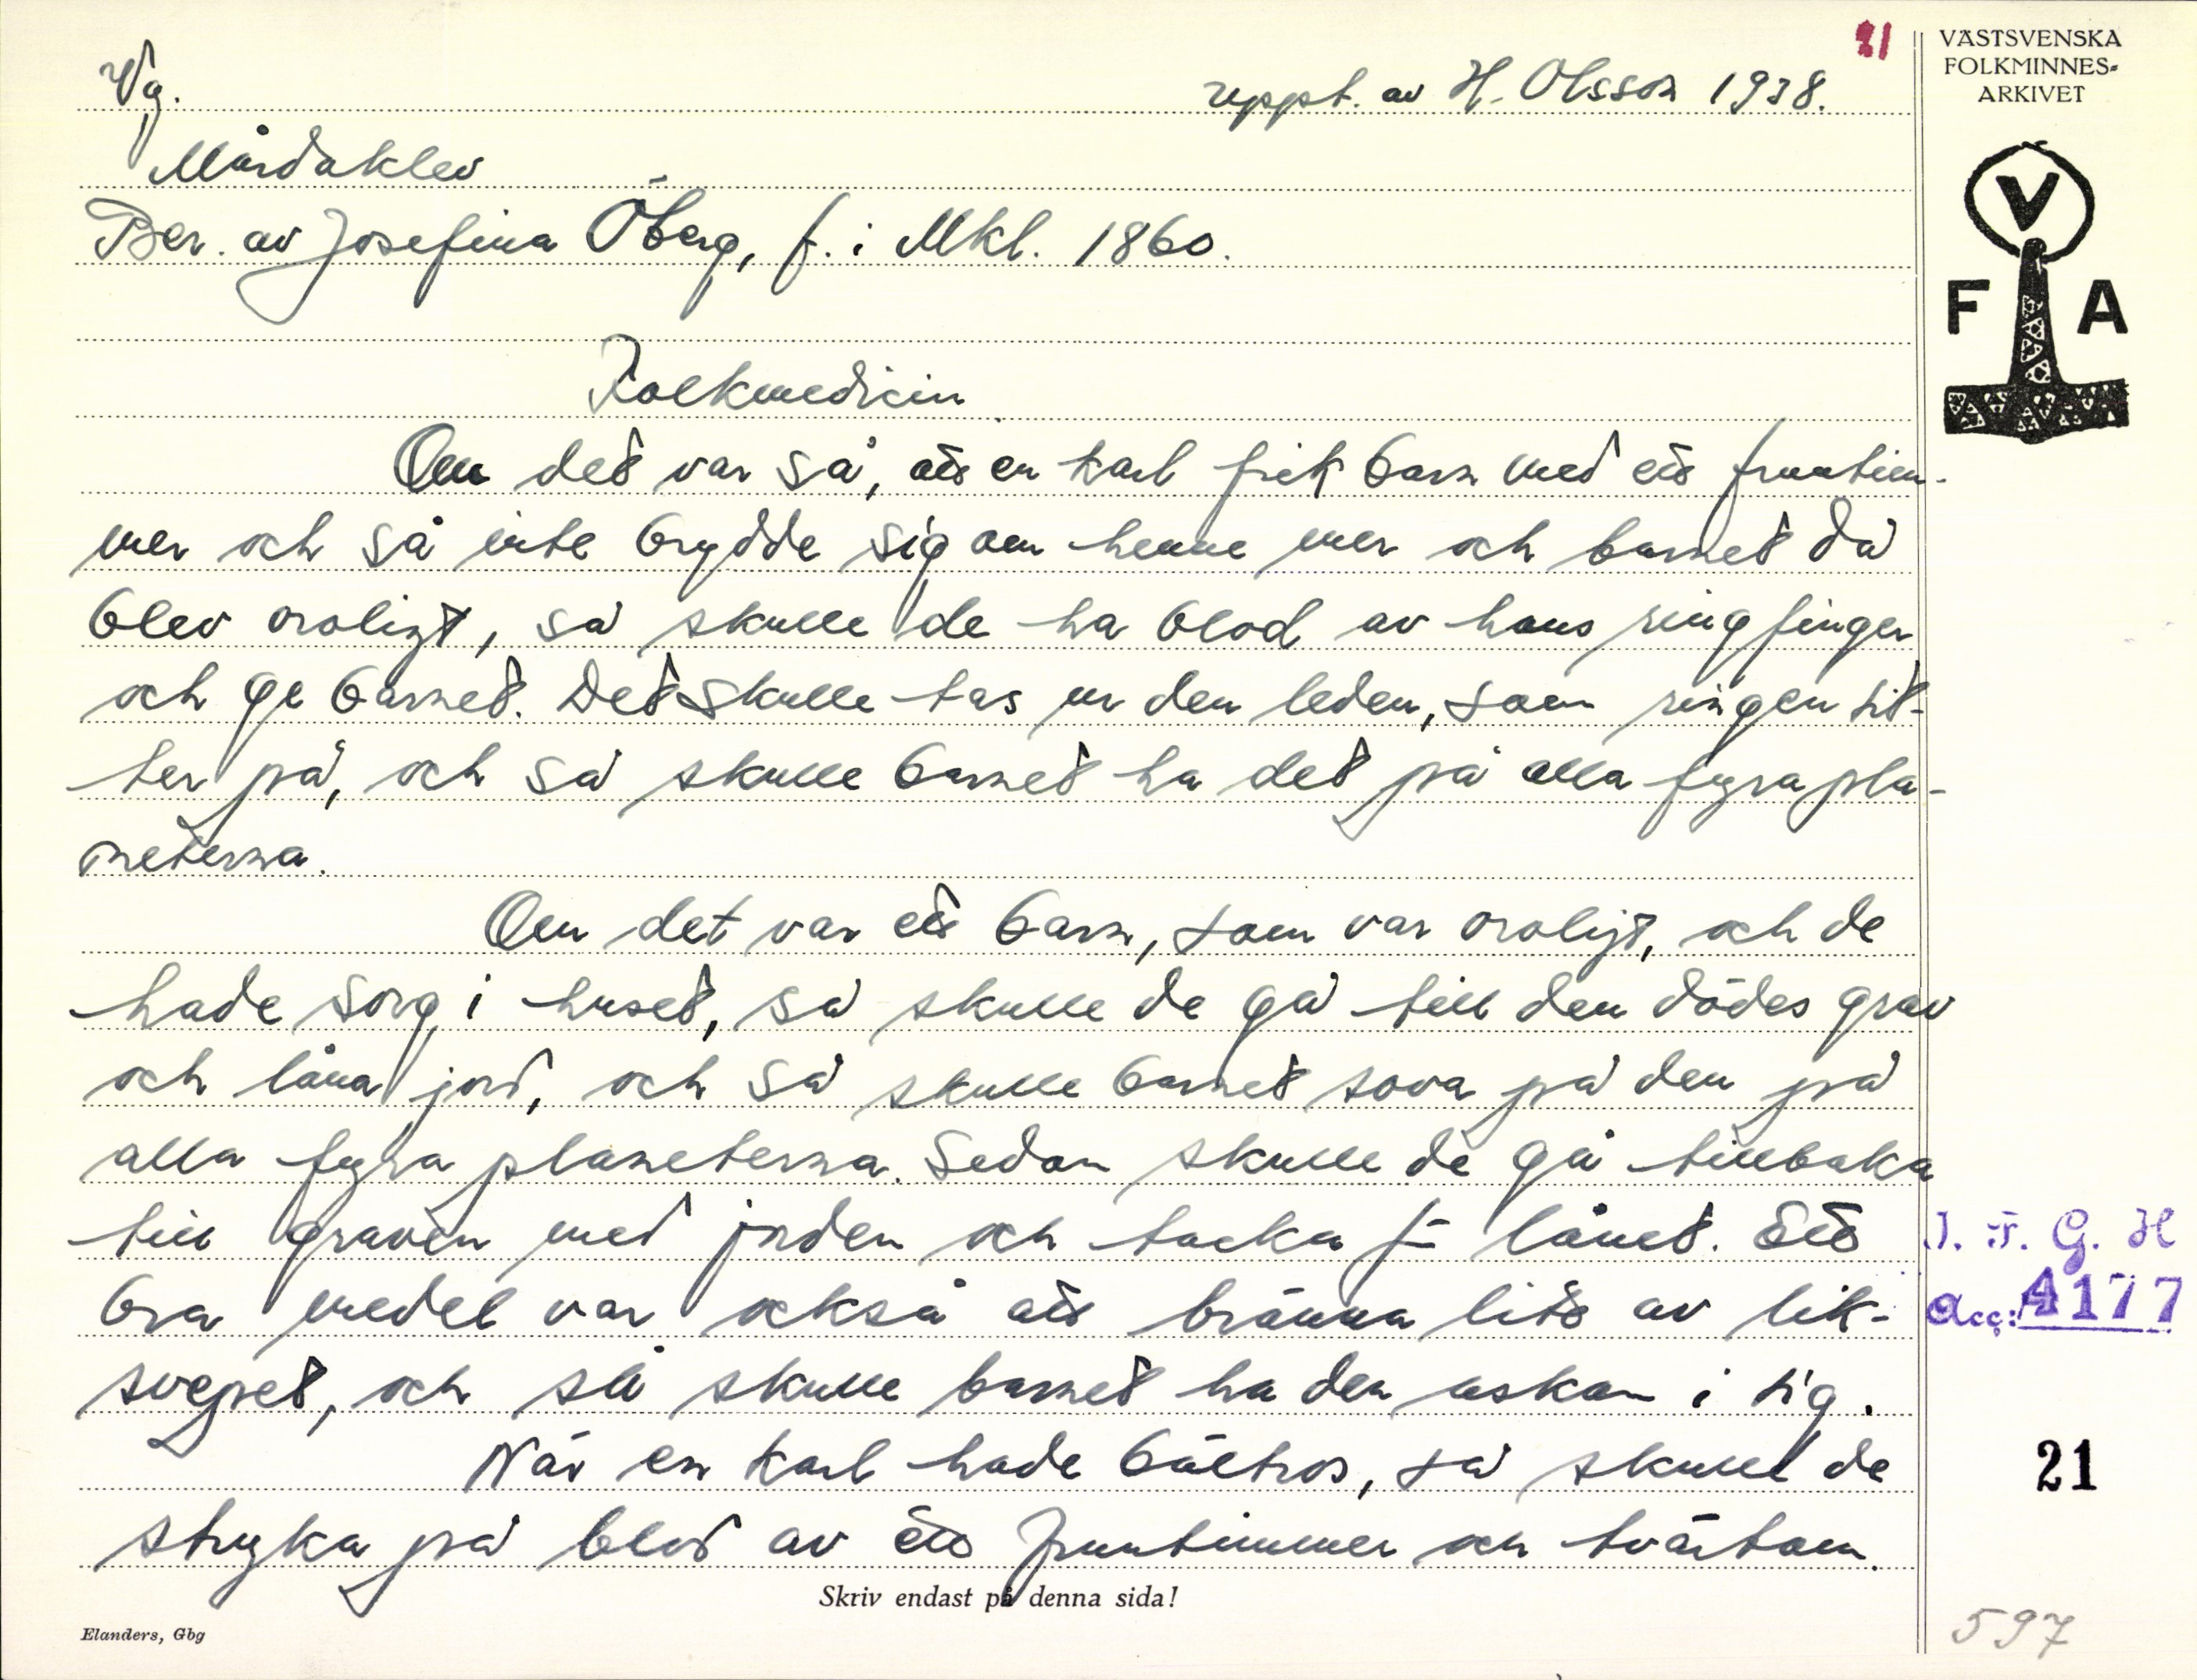 Vg.
uppt. av H. Olsson 1938.
21
VÄSTSVENSKA
FOLKMINNES-
ARKIVET
V
F A
Mårdaklev
Ber. av Josefina Öberg, f. i Mkl. 1860.
Folkmedicin
Om det var så, att en karl fick barn med ett fruntim-
mer och så inte brydde sig om henne mer och barnet då
blev oroligt, så skulle de ha blod av hans ringfinger
och ge barnet. Det skulle tas ur den leden, som ringen sit-
ter på, och så skulle barnet ha det på alla fyra pla-
neterna.
Om det var ett barn, som var oroligt, och de
hade sorg i huset, så skulle de gå till den dödes grav
och låna jord, och så skulle barnet sova på den på
alla fyra planeterna. Sedan skulle de gå tillbaka
till graven med jorden och tacka f- lånet. Ett
bra medel var också att bränna litet av lik-
svepet, och så skulle barnet ha den askan i sig.
När en karl hade bältros, så skulle de
stryka på blod av ett fruntimmer och tvärtom.
I. F. G. H
Acc: 4177
21
Skriv endast på denna sida!
Elanders, Gbg
597